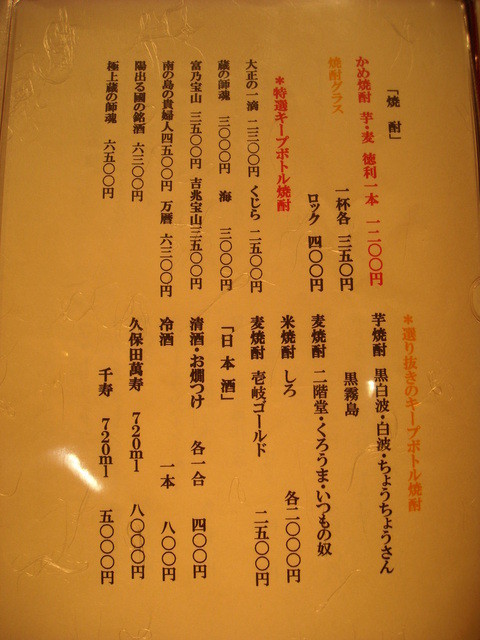 「焼酎」
かめ焼酎 芋・麦 徳利一本 一二〇〇円
焼酎グラス
一杯各 三五〇円
ロック 四〇〇円
*特選キープボトル焼酎
大正の一滴 二三〇〇円 くじら 二五〇〇円
蔵の師魂 三〇〇〇円 海 三〇〇〇円
富乃宝山 三五〇〇円 吉兆宝山三五〇〇円
南の島の貴婦人四五〇〇円 万暦 六三〇〇円
陽出る國の銘酒 六三〇〇円
極上蔵の師魂 六五〇〇円
*選り抜きのキープボトル焼酎
芋焼酎 黒白波・白波・ちょうちょうさん
黒霧島
麦焼酎 二階堂・くろうま・いつもの奴
米焼酎 しろ 各二〇〇〇円
麦焼酎 壱岐ゴールド 二五〇〇円
「日本酒」
清酒・お燗つけ 各一合 四〇〇円
冷酒 一本 八〇〇円
久保田萬寿 720ml 八〇〇〇円
千寿 720ml 五〇〇〇円